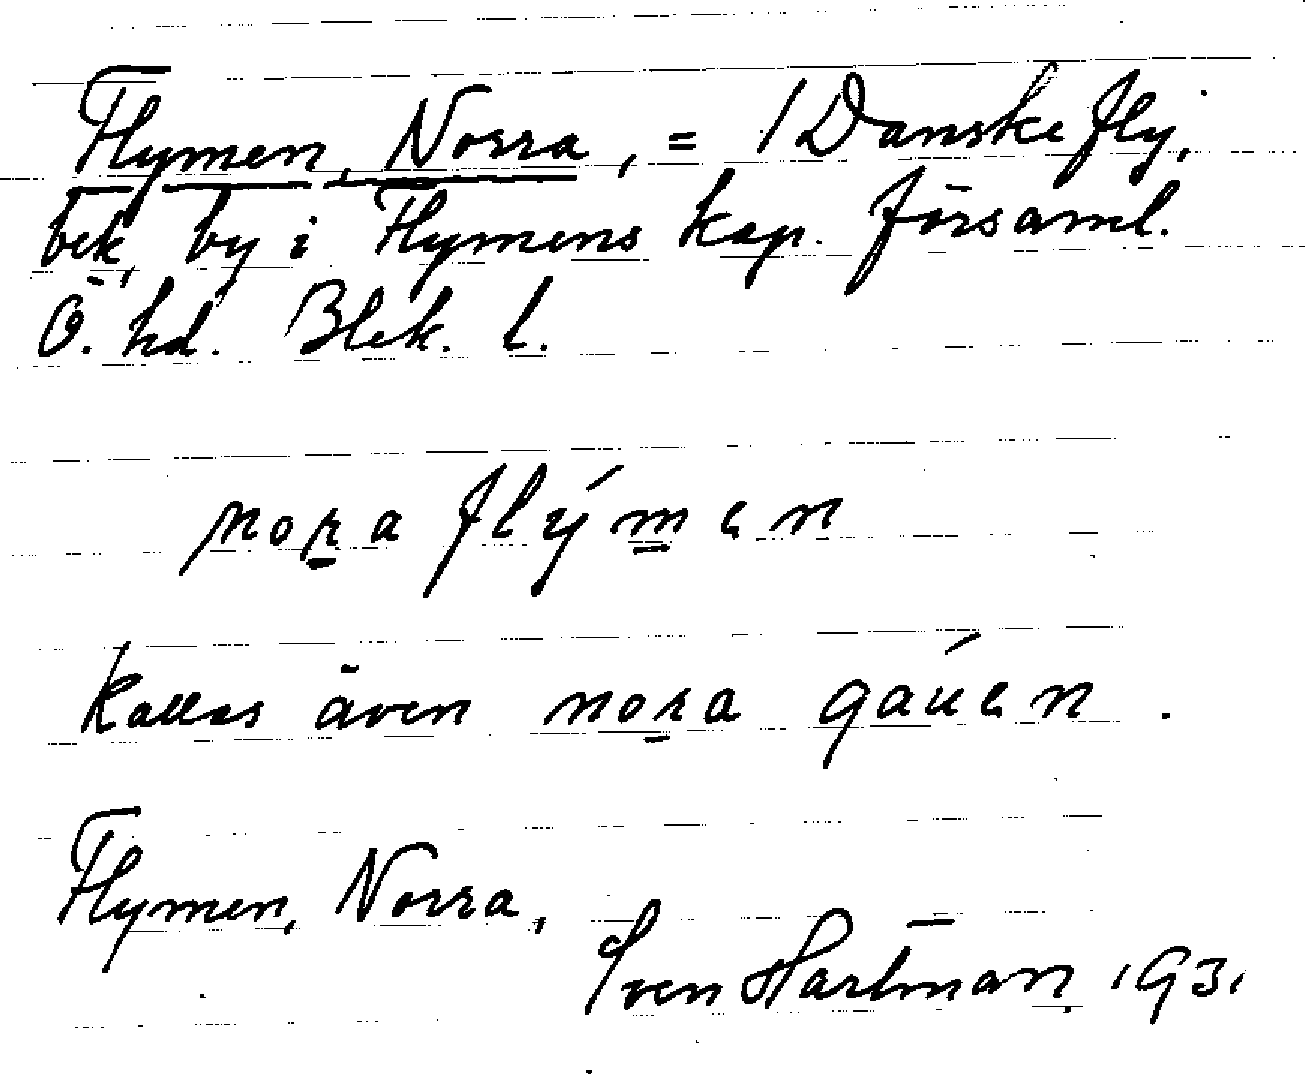 Flymen, Norra, = 1 Danskefly,
bek, by i Flymens kap. församl.
Ö. hd. Blek. l.
nora flýmen
Kallas även nora gaúen.
Flymen, Norra,
Sven Hartman 1931